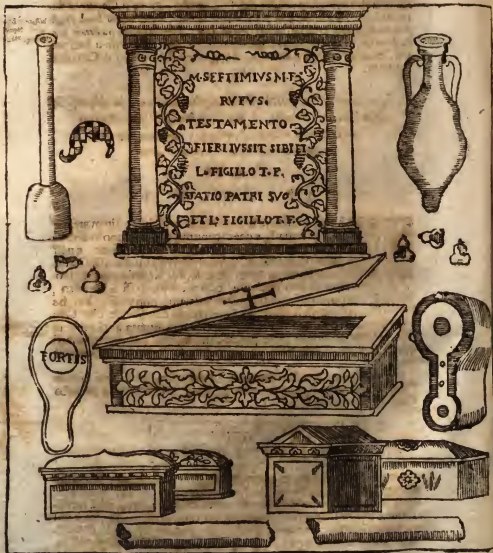 M·SEPTIMIVS M·F·
RVFVS·
TESTAMENTO
FIERI IVSSIT SIBI ET
L·FIGILLO T·F,
STATIO PATRI SVO
ET L·FIGILLO T·F·
FORTIS